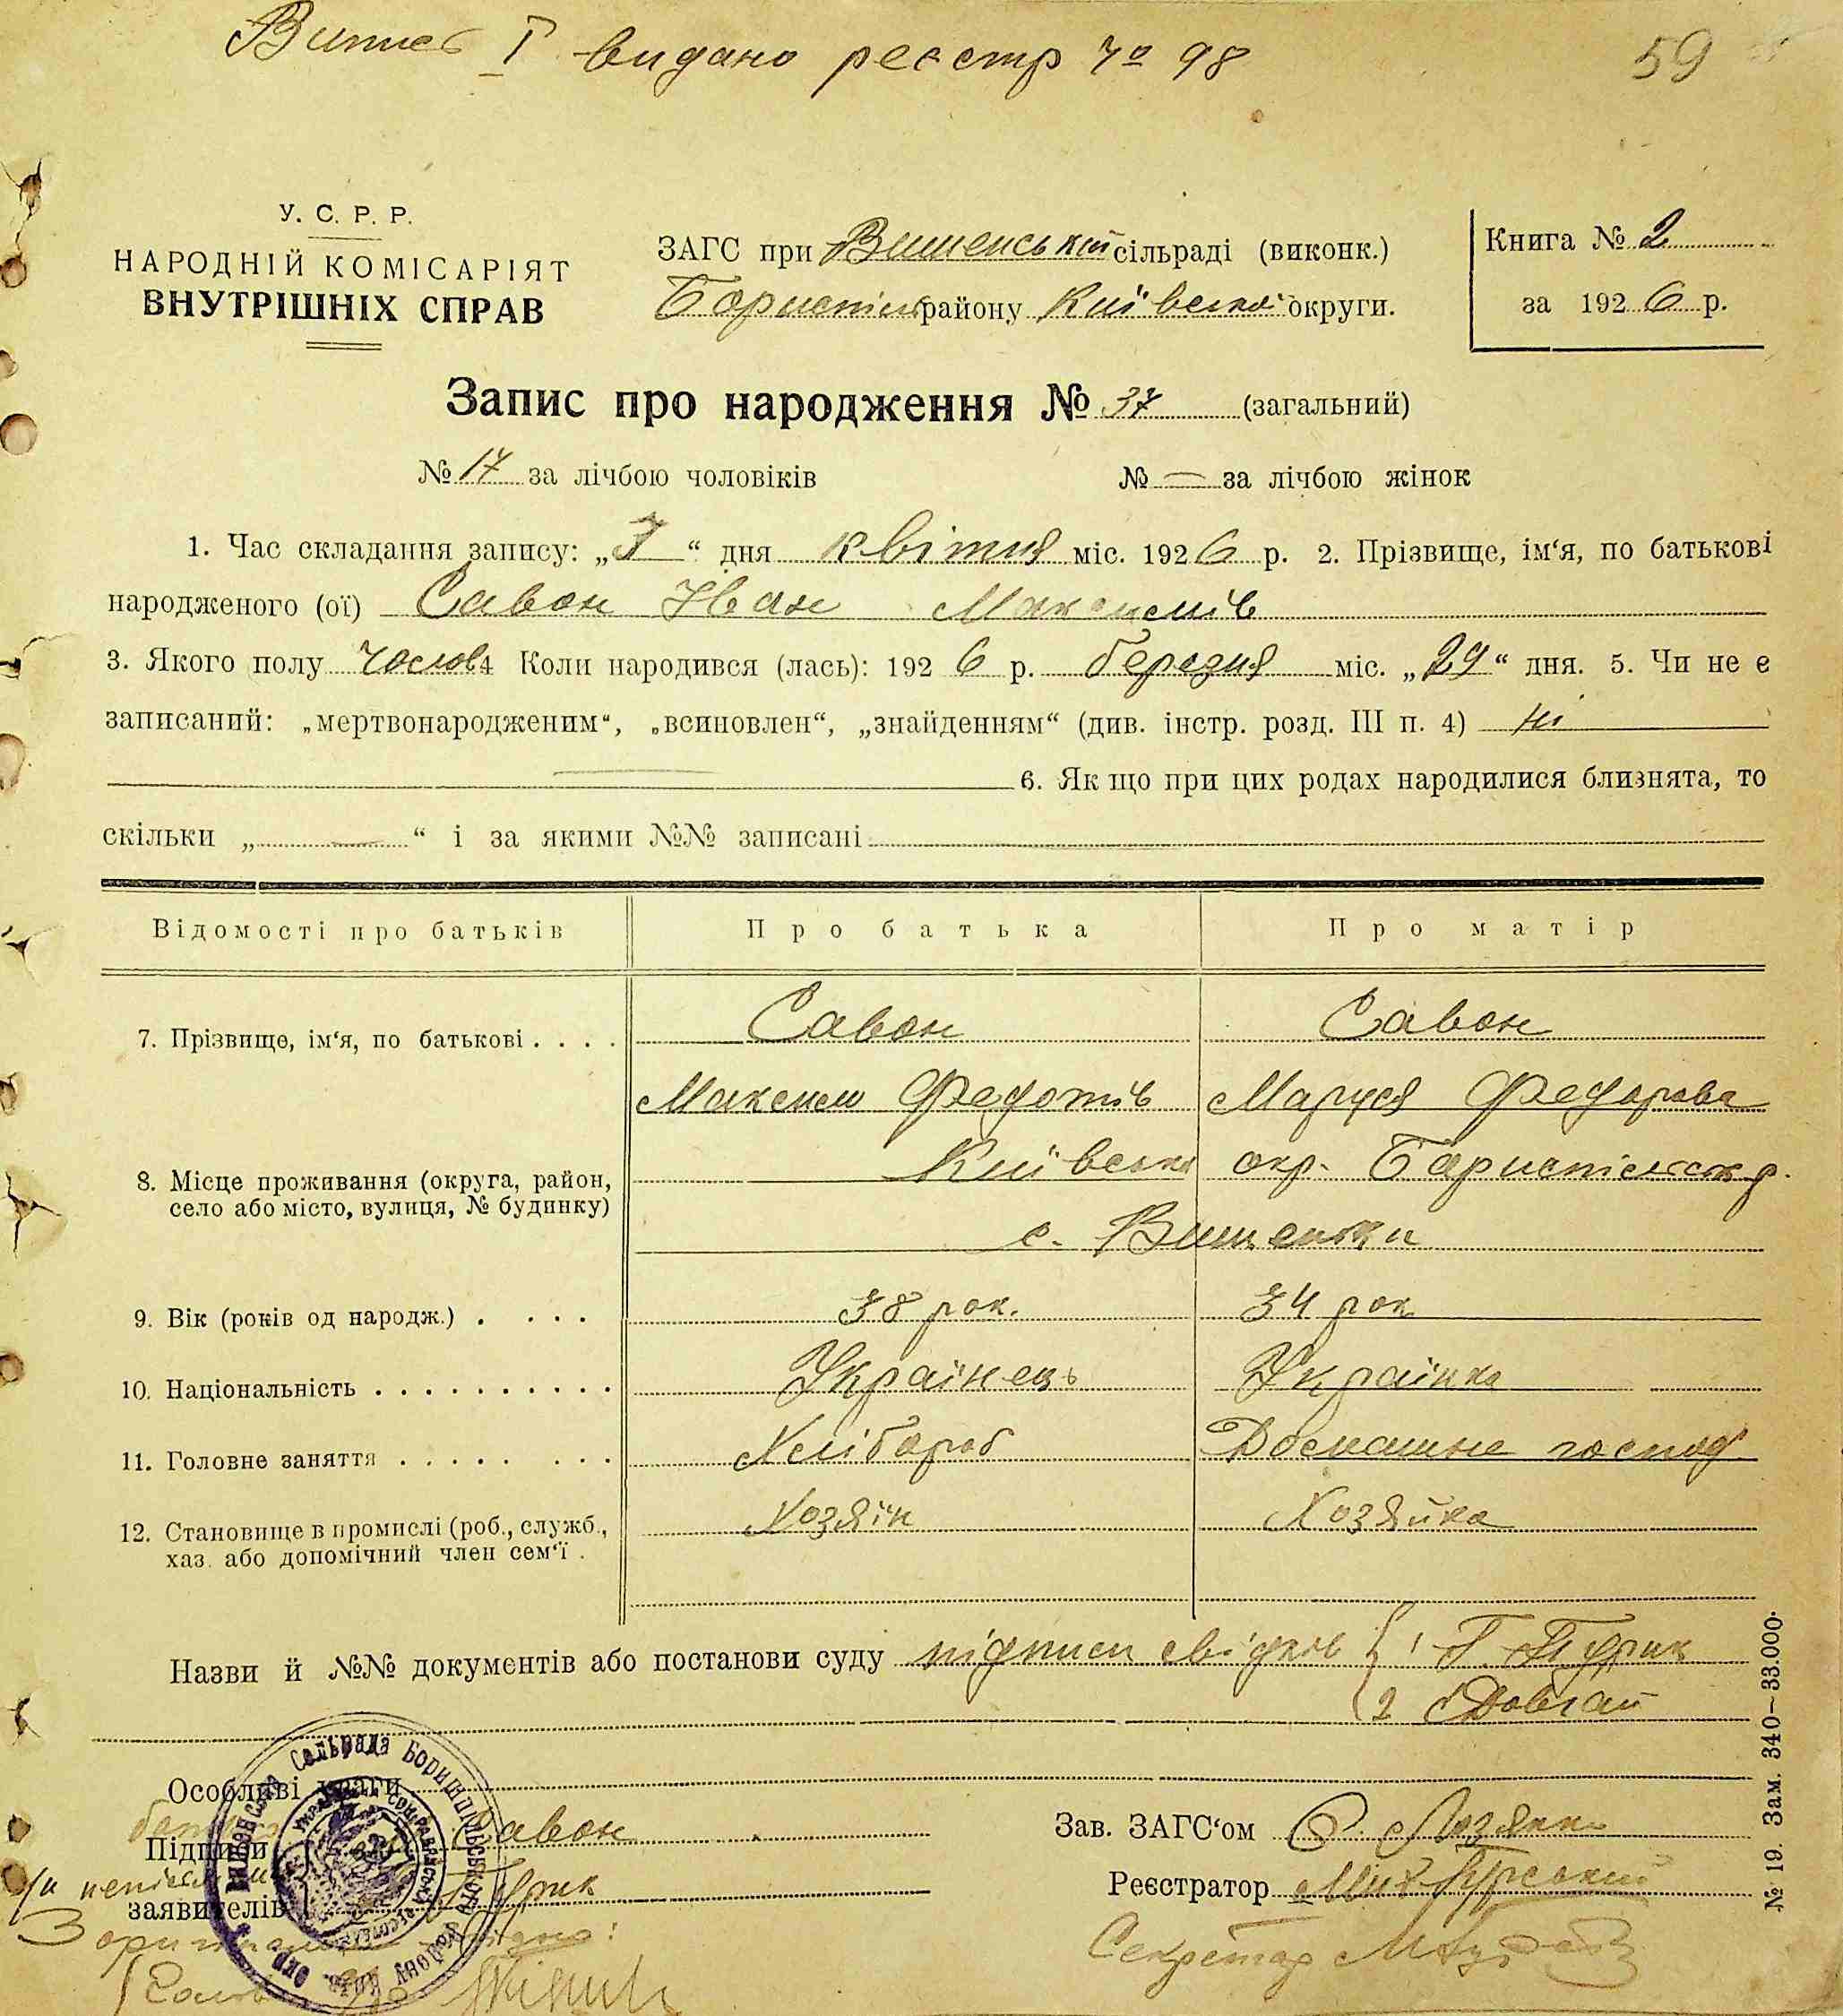 Випис I видано реєстр № 98
59
У. С. Р. Р.
НАРОДНІЙ КОМІСАРІЯТ
ВНУТРІШНІХ СПРАВ
ЗАГС при Вишенській сільраді (виконк.)
Бориспіль району Київської округи.
Книга № 2
за 1926 р.
Запис про народження № 37 (загальний)
№ 17 за лічбою чоловіків № — за лічбою жінок
1. Час складання запису: „7“ дня квітня міс. 1926 р. 2. Прізвище, ім‘я, по батькові
народженого (ої) Савон Іван Максимів
3. Якого полу чолов 4 Коли народився (лась): 1926 р. березня міс. „29“ дня. 5. Чи не є
записаний: „мертвонародженим“, „всиновлен“, „знайденням“ (див. інстр. розд. III п. 4) ні
6. Як що при цих родах народилися близнята, то
скільки „ — “ і за якими №№ записані
Відомості про батьків Про батька Про матір
7. Прізвище, ім‘я, по батькові . . . . Савон Савон
Максим Федотів Маруся Федорова
8. Місце проживання (округа, район,
село або місто, вулиця, № будинку)
Київська окр. Бориспільськ р.
с. Вишеньки
9. Вік (років од народж.) . . . . 38 рок. 34 рок
10. Національність . . . . . . . . . . Українець Українка
11. Головне заняття . . . . . . . . Хлібороб Домашнє господ.
12. Становище в промислі (роб., служб.,
хаз. або допомічний член сем‘ї .
Хозяїн Хозяйка
Назви й №№ документів або постанови суду підписи свідків { 1 Г. Пурик
2 Довгай
Особливі уваги
Підписи Савон
заявителів Пурик
Зав. ЗАГС‘ом
Реєстратор
Секретар
Сельрада Боришпільського району
№ 19. Зам. 340—33.000.